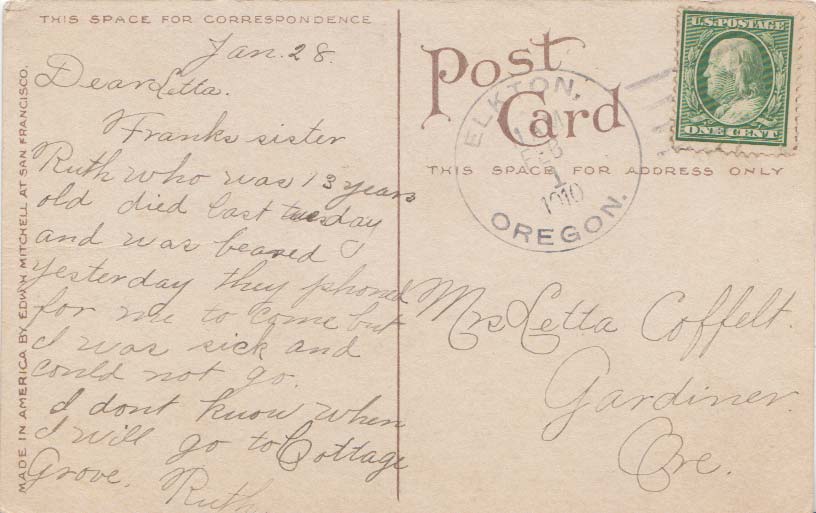 THIS SPACE FOR CORRESPONDENCE
Jan. 28.
Dear Letta.
Franks sister
Ruth who was 13 years
old died last tuesday
and was beared
yesterday they phoned
for me to come but
I was sick and
could not go.
I dont know when
I will go to Cottage
Grove.
Ruth
MADE IN AMERICA BY EDW'H MITCHELL AT SAN FRANCISCO.
Post
Card
THIS SPACE FOR ADDRESS ONLY
ELKTON,
FEB
1
1910
OREGON.
U.S. POSTAGE
ONE CENT
Mrs Letta Coffelt.
Gardiner.
Ore.